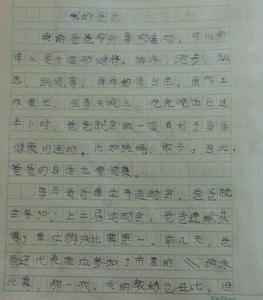 我的爸爸
我的爸爸特别喜欢运动，可以称
得上是个运动健将。游泳、跑步、跳
远、跳绳等，样样都很出色。虽然工
作很忙，但每天晚上，吃完晚饭过
半小时，爸爸就会做一些有利于身体
健康的运动。比如跳绳、散步。因此，
爸爸的身体也很健康。
每年爸爸单位开运动会，爸爸就
会参加，上三届运动会，爸爸连续获
得了单位游泳比赛第一。前几天，爸
爸还代表单位参加了市里的游泳
比赛，那一次，我的教练也在比，但